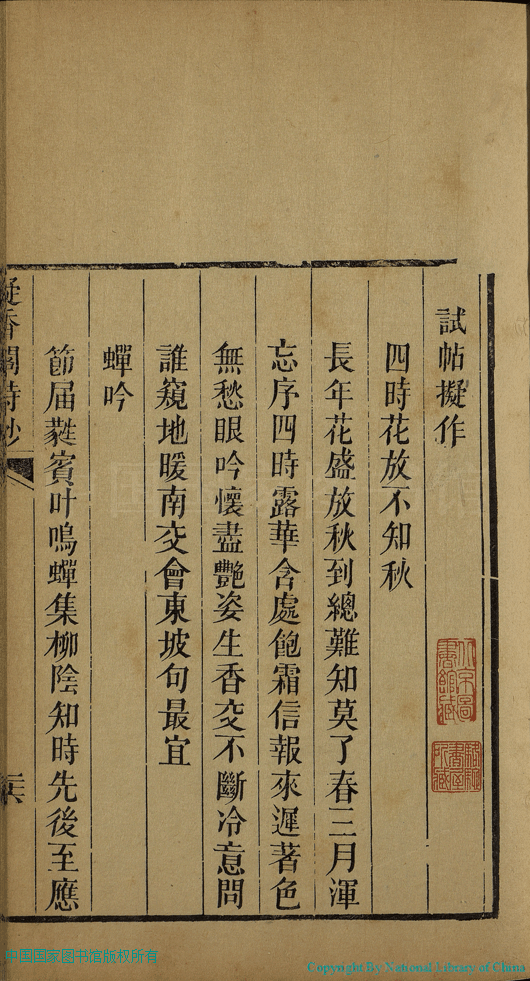 試帖擬作
四時花放不知秋
長年花盛放秋到總難知莫了春三月渾
忘序四時露華含處飽霜信報來遲著色
無愁眼吟懷盡艷姿生香交不斷冷意問
誰窺地暖南交會東坡句最宜
蟬吟
節届蕤賓叶鳴蟬集柳陰知時先後至應
凝香閣詩鈔
北京圖書館藏
中国国家图书馆版权所有
Copyright By National Library of China